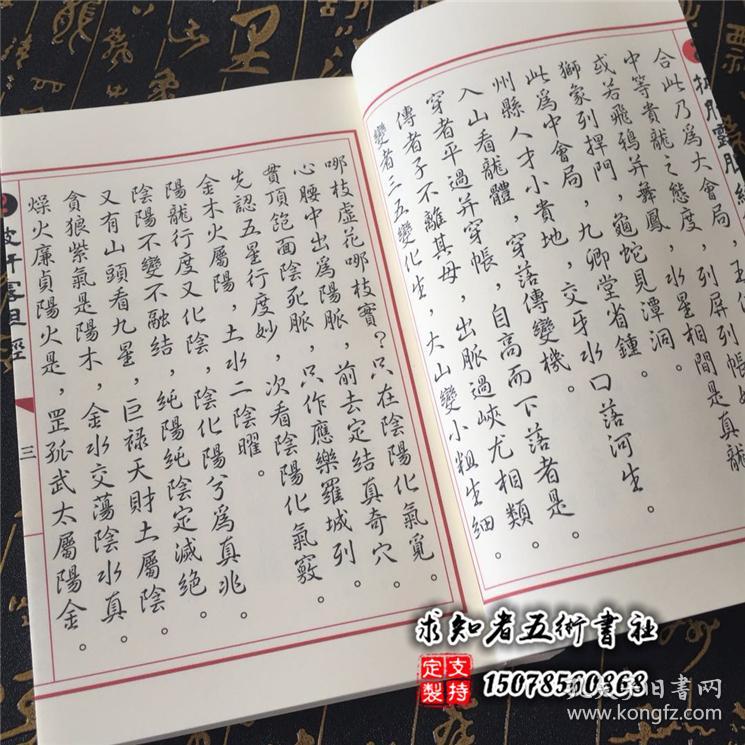 合此乃爲大會局，
列屏列帳
中等貴龍之態度，水星相間是真龍
或若飛鴉并舞鳳，龜蛇見潭洞。
獅象列捍門，九卿堂省鍾。
此爲中會局，交牙水口落河生。
州縣人才小貴地，穿落傳變機。
入山看龍體，自高而下落者是。
穿者平過并穿帳，出脈過峽尤相類。
傳者子不離其母，大山變小粗生細。
變者二五變化生，
哪枝虛花哪枝實？只在陰陽化氣覓。
心腰中出爲陽脈，前去定結真奇穴。
貫頂飽面陰死脈，只作應樂羅城列。
先認五星行度妙，次看陰陽化氣竅。
金木火屬陽，土水二陰曜。
陽龍行度又化陰，陰化陽兮爲真兆。
陰陽不變不融結，純陽純陰定滅絕。
又有山頭看九星，巨禄天財土屬陰。
貪狼紫氣是陽木，金水交蕩陰水真。
燥火廉貞陽火是，罡孤武太屬陽金。
三
求知者五術書社
支持定製
15078560868
旧書网
www.kongfz.com